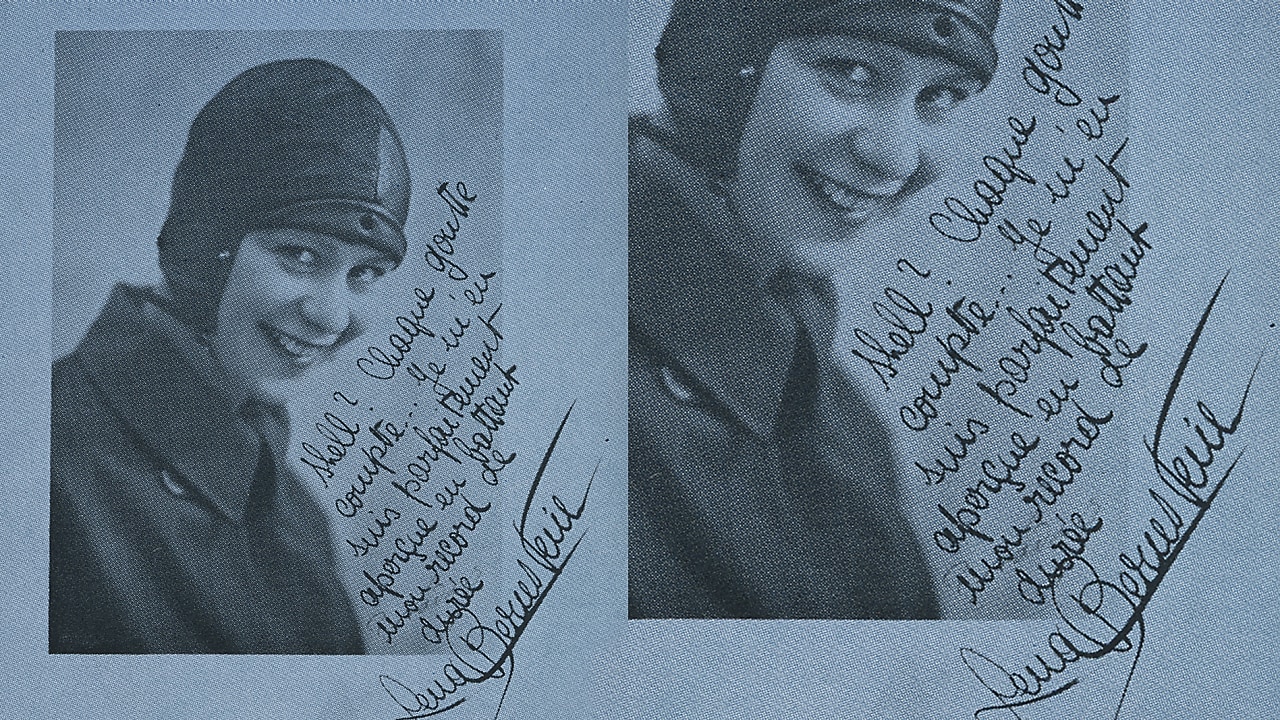 Shell? Chaque goutte
compte... Je m'en
suis parfaitement
aperçue en battant
mon record de
durée
Lena Bernstein
Shell? Chaque goutt
compte... Je m'en
suis parfaitement
aperçue en battant
mon record de
durée
Lena Bernstein